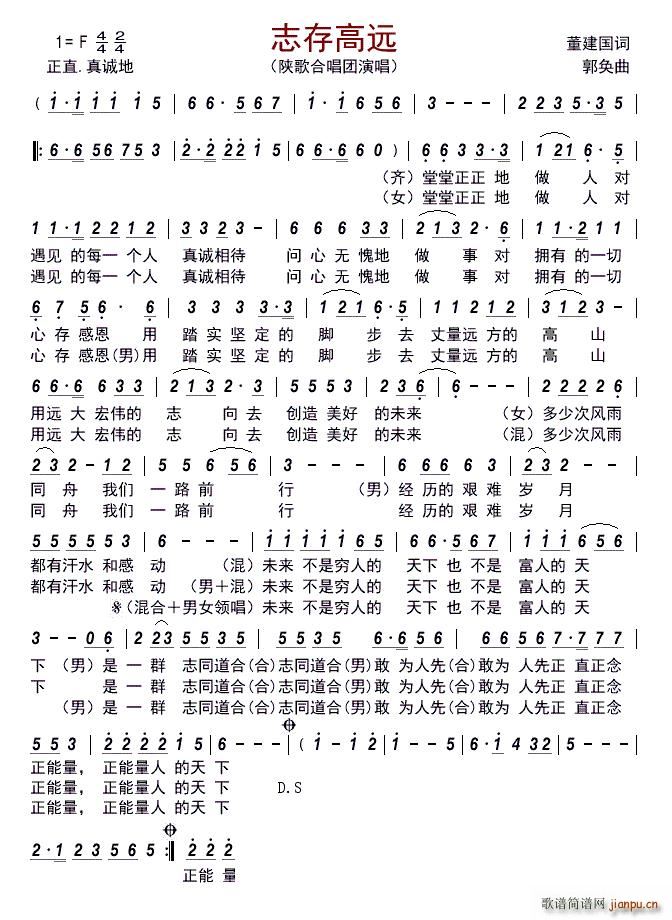 志存高远
1= F 4/4 2/4
董建国词
正直.真诚地
（陕歌合唱团演唱）
郭奂曲
( 1·1 1 1 1 5 | 6 6· 5 6 7 | 1·1 6 5 6 | 3 - - - | 2 2 3 5·3 5 |
|: 6·6 5 6 7 5 3 | 2·2 2 2 1 5 | 6 6·6 6 0 ) | 6 6 3 3·3 | 1 2 1 6· 5 |
（齐）堂堂正正 地 做 人 对
（女）堂堂正正 地 做 人 对
1 1·1 2 2 1 2 | 3 3 2 3 - | 6 6 6 3 3 | 2 1 3 2· 6 | 1 1·2 1 1 |
遇见 的每一 个人 真诚相待 问 心 无 愧地 做 事 对 拥有 的一切
遇见 的每一 个人 真诚相待 问 心 无 愧地 做 事 对 拥有 的一切
6 7 5 6· 6 | 3 3 3 3·3 | 1 2 1 6·5 | 1 1 2 1 2 | 3 1 2 3 |
心 存 感恩 用 踏 实 坚 定 的 脚 步 去 丈量远 方的 高 山
心 存 感恩(男)用 踏 实 坚 定 的 脚 步 去 丈量远 方的 高 山
6 6·6 6 3 3 | 2 1 3 2· 3 | 5 5 5 3 | 2 3 6 | 6 - - | 2 2 2 2 6 |
用远 大 宏伟的 志 向去 创造 美好 的未来 （女）多少次风雨
用远 大 宏伟的 志 向去 创造 美好 的未来 （混）多少次风雨
2 3 2 - 1 2 | 5 5 5 6 5 | 3 - - | 6 6 6 6 6 | 3 2 3 |
同 舟 我们 一 路 前 行 （男）经 历的 艰难 岁 月
同 舟 我们 一 路 前 行 经 历的 艰难 岁 月
5 5 5 5 5 3 | 6 - - | 1 1 1 1 1 6 5 | 6 6· 5 6 7 | 1 1 1 6 5 6 |
都有汗水 和感 动 （混）未来 不是穷人的 天下 也 不是 富人的 天
都有汗水 和感 动 （男＋混）未来 不是穷人的 天下 也 不是 富人的 天
※（混合＋男女领唱）未来 不是穷人的 天下 也 不是 富人的 天
3 - - 0 6 | 2 2 3 | 5 5 3 5 5 3 3 | 6·6 5 6 | 6 6 5 6 7·7 7 7 |
下 （男）是 一 群 志同道合(合)志同道合(男)敢 为人先(合)敢为 人先正 直正念
下 是 一 群 志同道合(合)志同道合(男)敢 为人先(合)敢为 人先正 直正念
（男）是 一 群 志同道合(合)志同道合(男)敢 为人先(合)敢为 人先正 直正念
5 5 3 | 2 2 2 2 1 5 | 6 - - - | ( 1 - 1 2 | 3 - - 2 | 6·1 4 3 2 | 5 - - - |
正能量， 正能量人 的天 下
正能量， 正能量人 的天 下 D.S
正能量， 正能量人 的天 下
2·1 2 3 5 6 5 :| 2 2 2 6
正能 量
歌谱简谱网
jianpu.cn